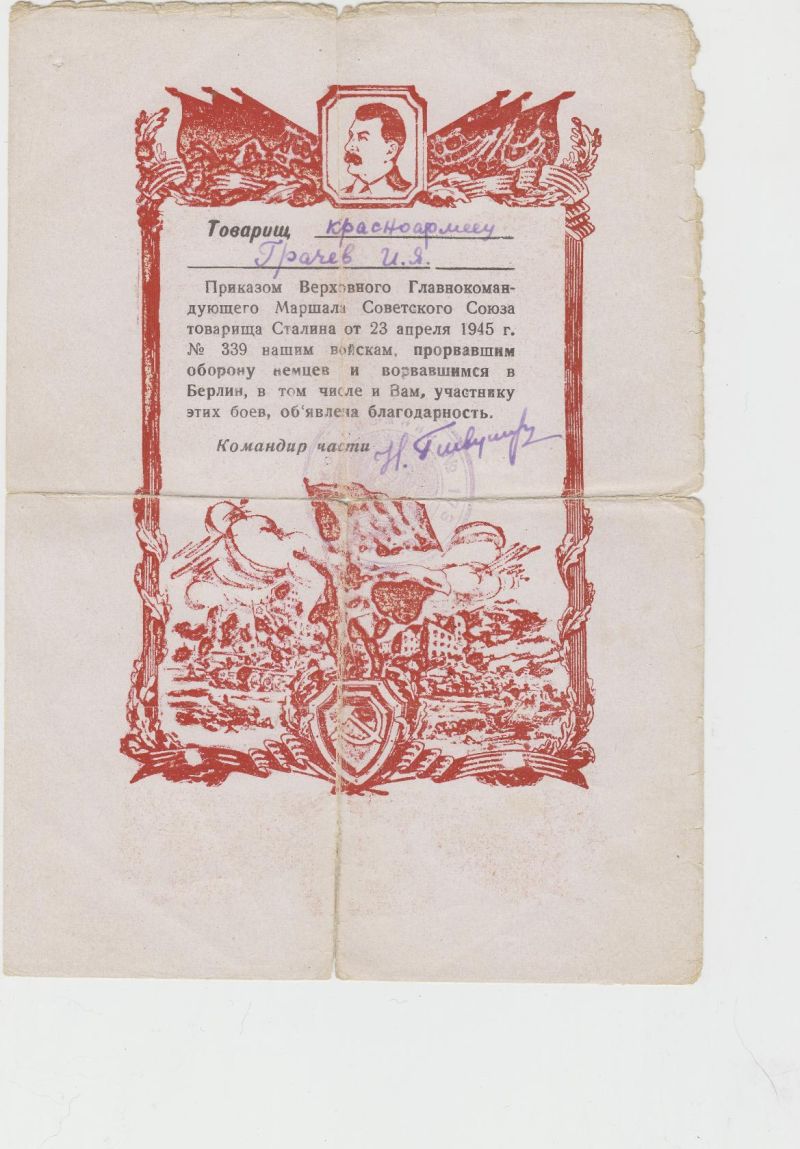 Товарищ красноармеец
Грачев И.Я.
Приказом Верховного Главнокоман-
дующего Маршала Советского Союза
товарища Сталина от 23 апреля 1945 г.
№ 339 нашим войскам, прорвавшим
оборону немцев и ворвавшимся в
Берлин, в том числе и Вам, участнику
этих боев, об'явлена благодарность.
Командир части